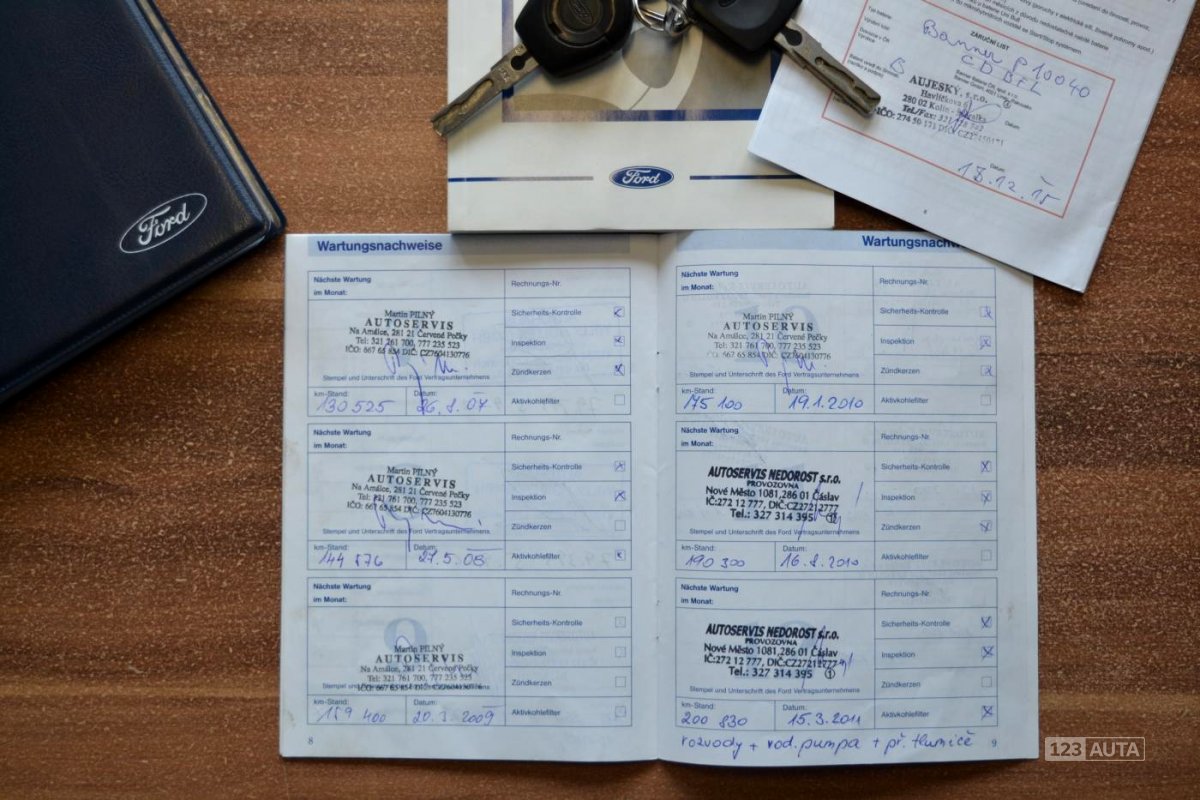 Ford
Ford
ZÁRUČNÍ LIST
Banner P10040
CD BFL
AUJESKÝ, s.r.o.
Havlíčkova
280 02 Kolín
Datum
18.12.15
Wartungsnachweise
Nächste Wartung
im Monat:
Rechnungs-Nr.
Sicherheits-Kontrolle
Inspektion
Zündkerzen
Aktivkohlefilter
Martin PILNÝ
AUTOSERVIS
Na Amálce, 281 21 Červené Pečky
Tel: 321 761 700, 777 235 523
IČO: 667 65 854 DIČ: CZ7604130776
Stempel und Unterschrift des Ford Vertragsunternehmens
km-Stand:
130 525
Datum:
26.8.07
Nächste Wartung
im Monat:
Rechnungs-Nr.
Sicherheits-Kontrolle
Inspektion
Zündkerzen
Aktivkohlefilter
Martin PILNÝ
AUTOSERVIS
Na Amálce, 281 21 Červené Pečky
Tel: 321 761 700, 777 235 523
IČO: 667 65 854 DIČ: CZ7604130776
Stempel und Unterschrift des Ford Vertragsunternehmens
km-Stand:
144 876
Datum:
27.5.08
Nächste Wartung
im Monat:
Rechnungs-Nr.
Sicherheits-Kontrolle
Inspektion
Zündkerzen
Aktivkohlefilter
Martin PILNÝ
AUTOSERVIS
Na Amálce, 281 21 Červené Pečky
Tel: 321 761 700, 777 235 523
IČO: 667 65 854 DIČ: CZ7604130776
km-Stand:
159 400
Datum:
20.3.2009
8
Wartungsnachw
Nächste Wartung
im Monat:
Rechnungs-Nr.
Sicherheits-Kontrolle
Inspektion
Zündkerzen
Aktivkohlefilter
Martin PILNÝ
AUTOSERVIS
Na Amálce, 281 21 Červené Pečky
Tel: 321 761 700, 777 235 523
IČO: 667 65 854 DIČ: CZ7604130776
Stempel und Unterschrift des Ford Vertragsunternehmens
km-Stand:
175 100
Datum:
19.1.2010
Nächste Wartung
im Monat:
Rechnungs-Nr.
Sicherheits-Kontrolle
Inspektion
Zündkerzen
Aktivkohlefilter
AUTOSERVIS NEDOROST s.r.o.
PROVOZOVNA
Nové Město 1081,286 01 Čáslav
IČ:272 12 777, DIČ:CZ27212777
Tel.: 327 314 395 ⑫
Stempel und Unterschrift des Ford Vertragsunternehmens
km-Stand:
190 300
Datum:
16.8.2010
Nächste Wartung
im Monat:
Rechnungs-Nr.
Sicherheits-Kontrolle
Inspektion
Zündkerzen
Aktivkohlefilter
AUTOSERVIS NEDOROST s.r.o.
PROVOZOVNA
Nové Město 1081,286 01 Čáslav
IČ:272 12 777, DIČ:CZ27212777
Tel.: 327 314 395 ①
Stempel und Unterschrift des Ford Vertragsunternehmens
km-Stand:
200 830
Datum:
15.3.2011
rozvody + vod. pumpa + př. tlumiče
9
123 AUTA